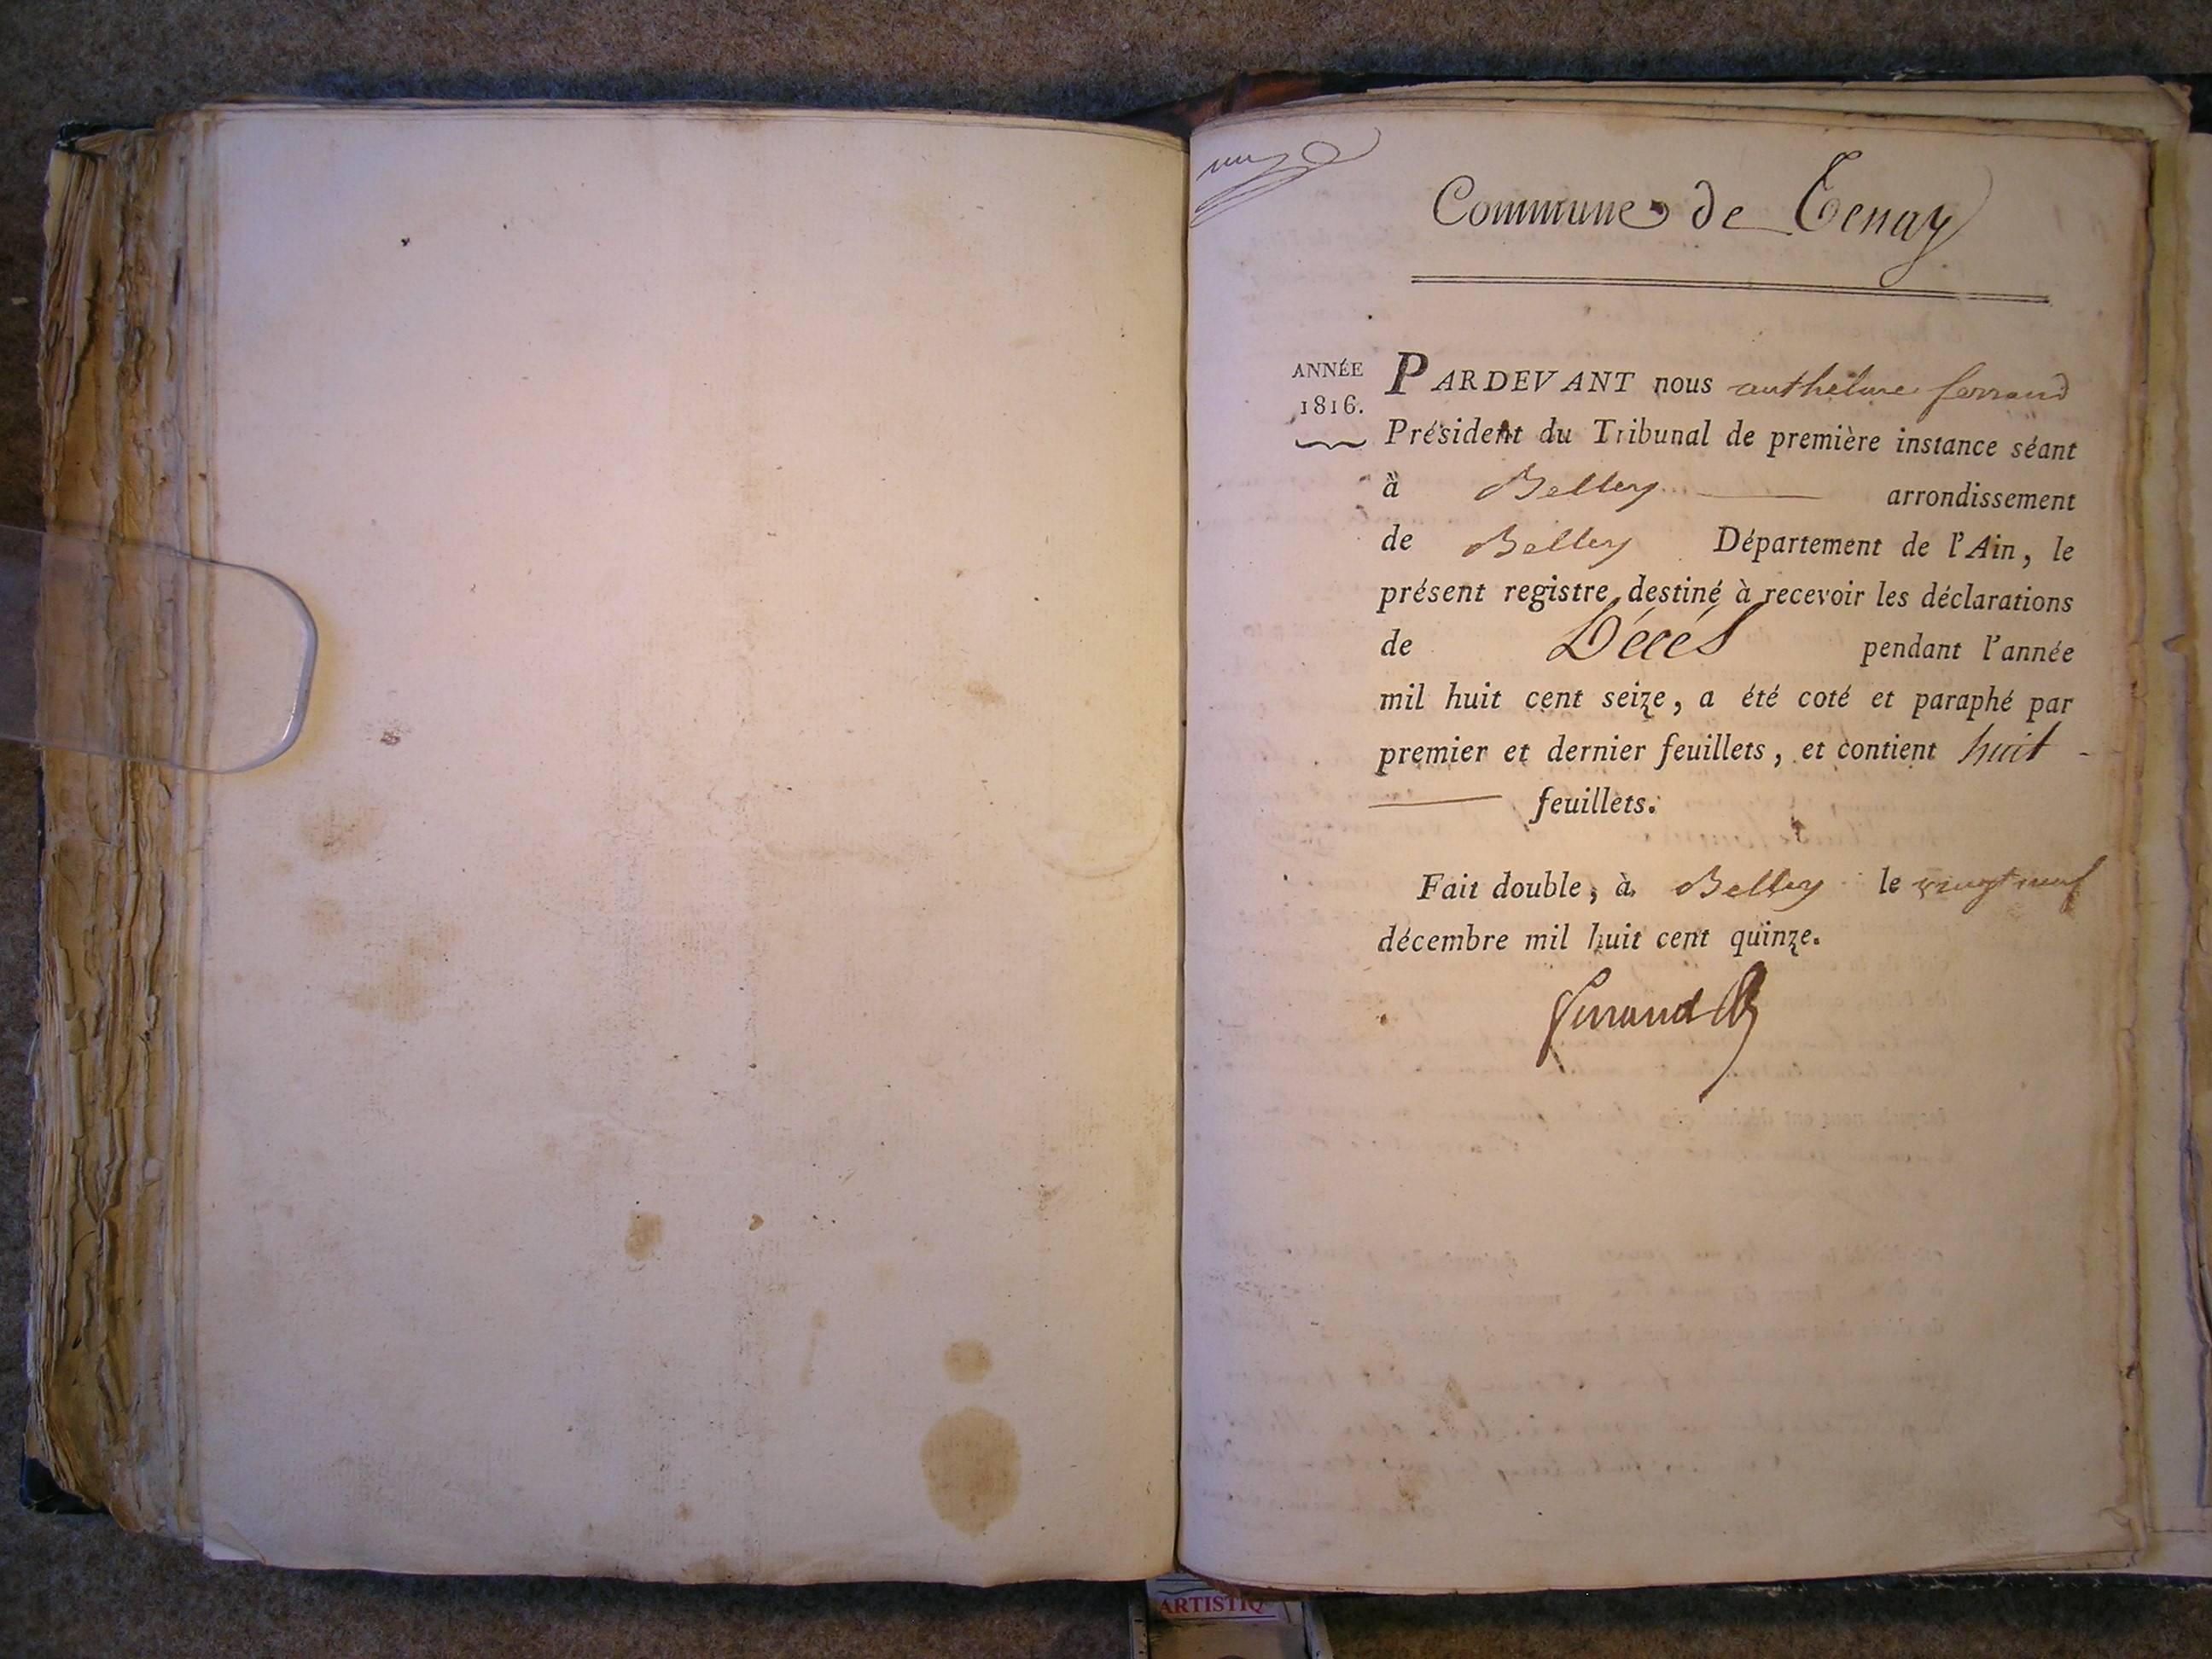 Commune de Tenay
ANNÉE
1816.
PARDEVANT nous anthelme ferrand
Président du Tribunal de première instance séant
à Belley arrondissement
de Belley Département de l'Ain, le
présent registre destiné à recevoir les déclarations
de Décés pendant l'année
mil huit cent seize, a été coté et paraphé par
premier et dernier feuillets, et contient huit
feuillets.
Fait double, à Belley le vingt neuf
décembre mil huit cent quinze.
Ferrand
ARTISTIQ